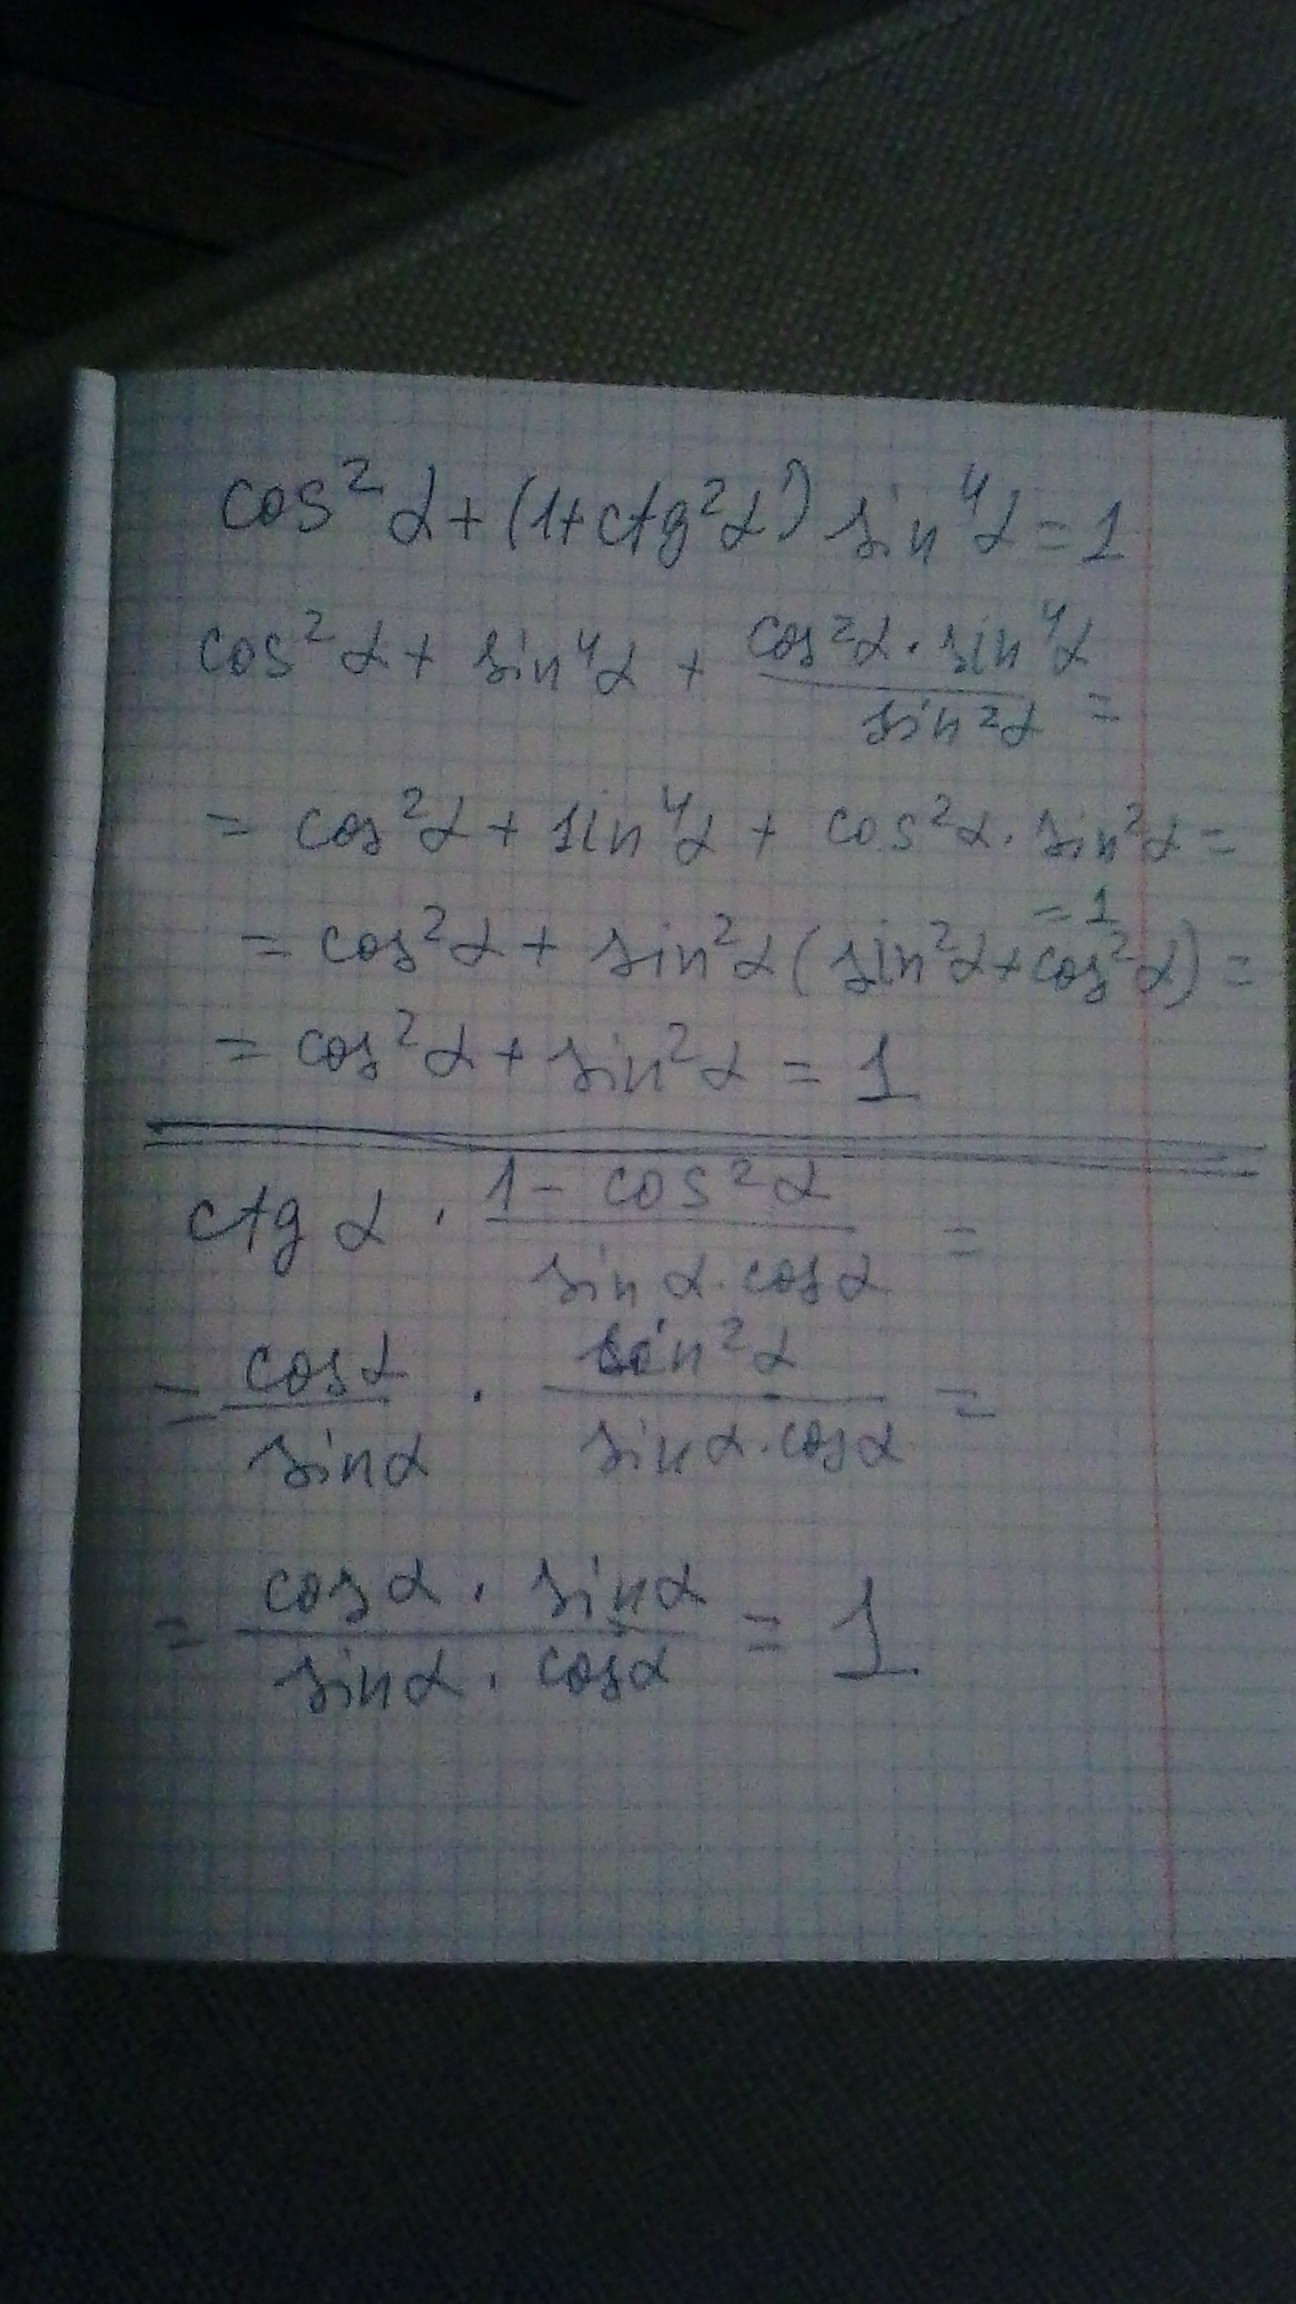 cos²α + (1+ctg²α) sin⁴α = 1
cos²α + sin⁴α + (cos²α · sin⁴α)/(sin²α) =
= cos²α + sin⁴α + cos²α · sin²α =
= 1
= cos²α + sin²α (sin²α + cos²α) =
= cos²α + sin²α = 1
ctg α · (1 - cos²α)/(sin α · cos α) =
= (cos α)/(sin α) · (sin²α)/(sin α · cos α) =
= (cos α · sin α)/(sin α · cos α) = 1